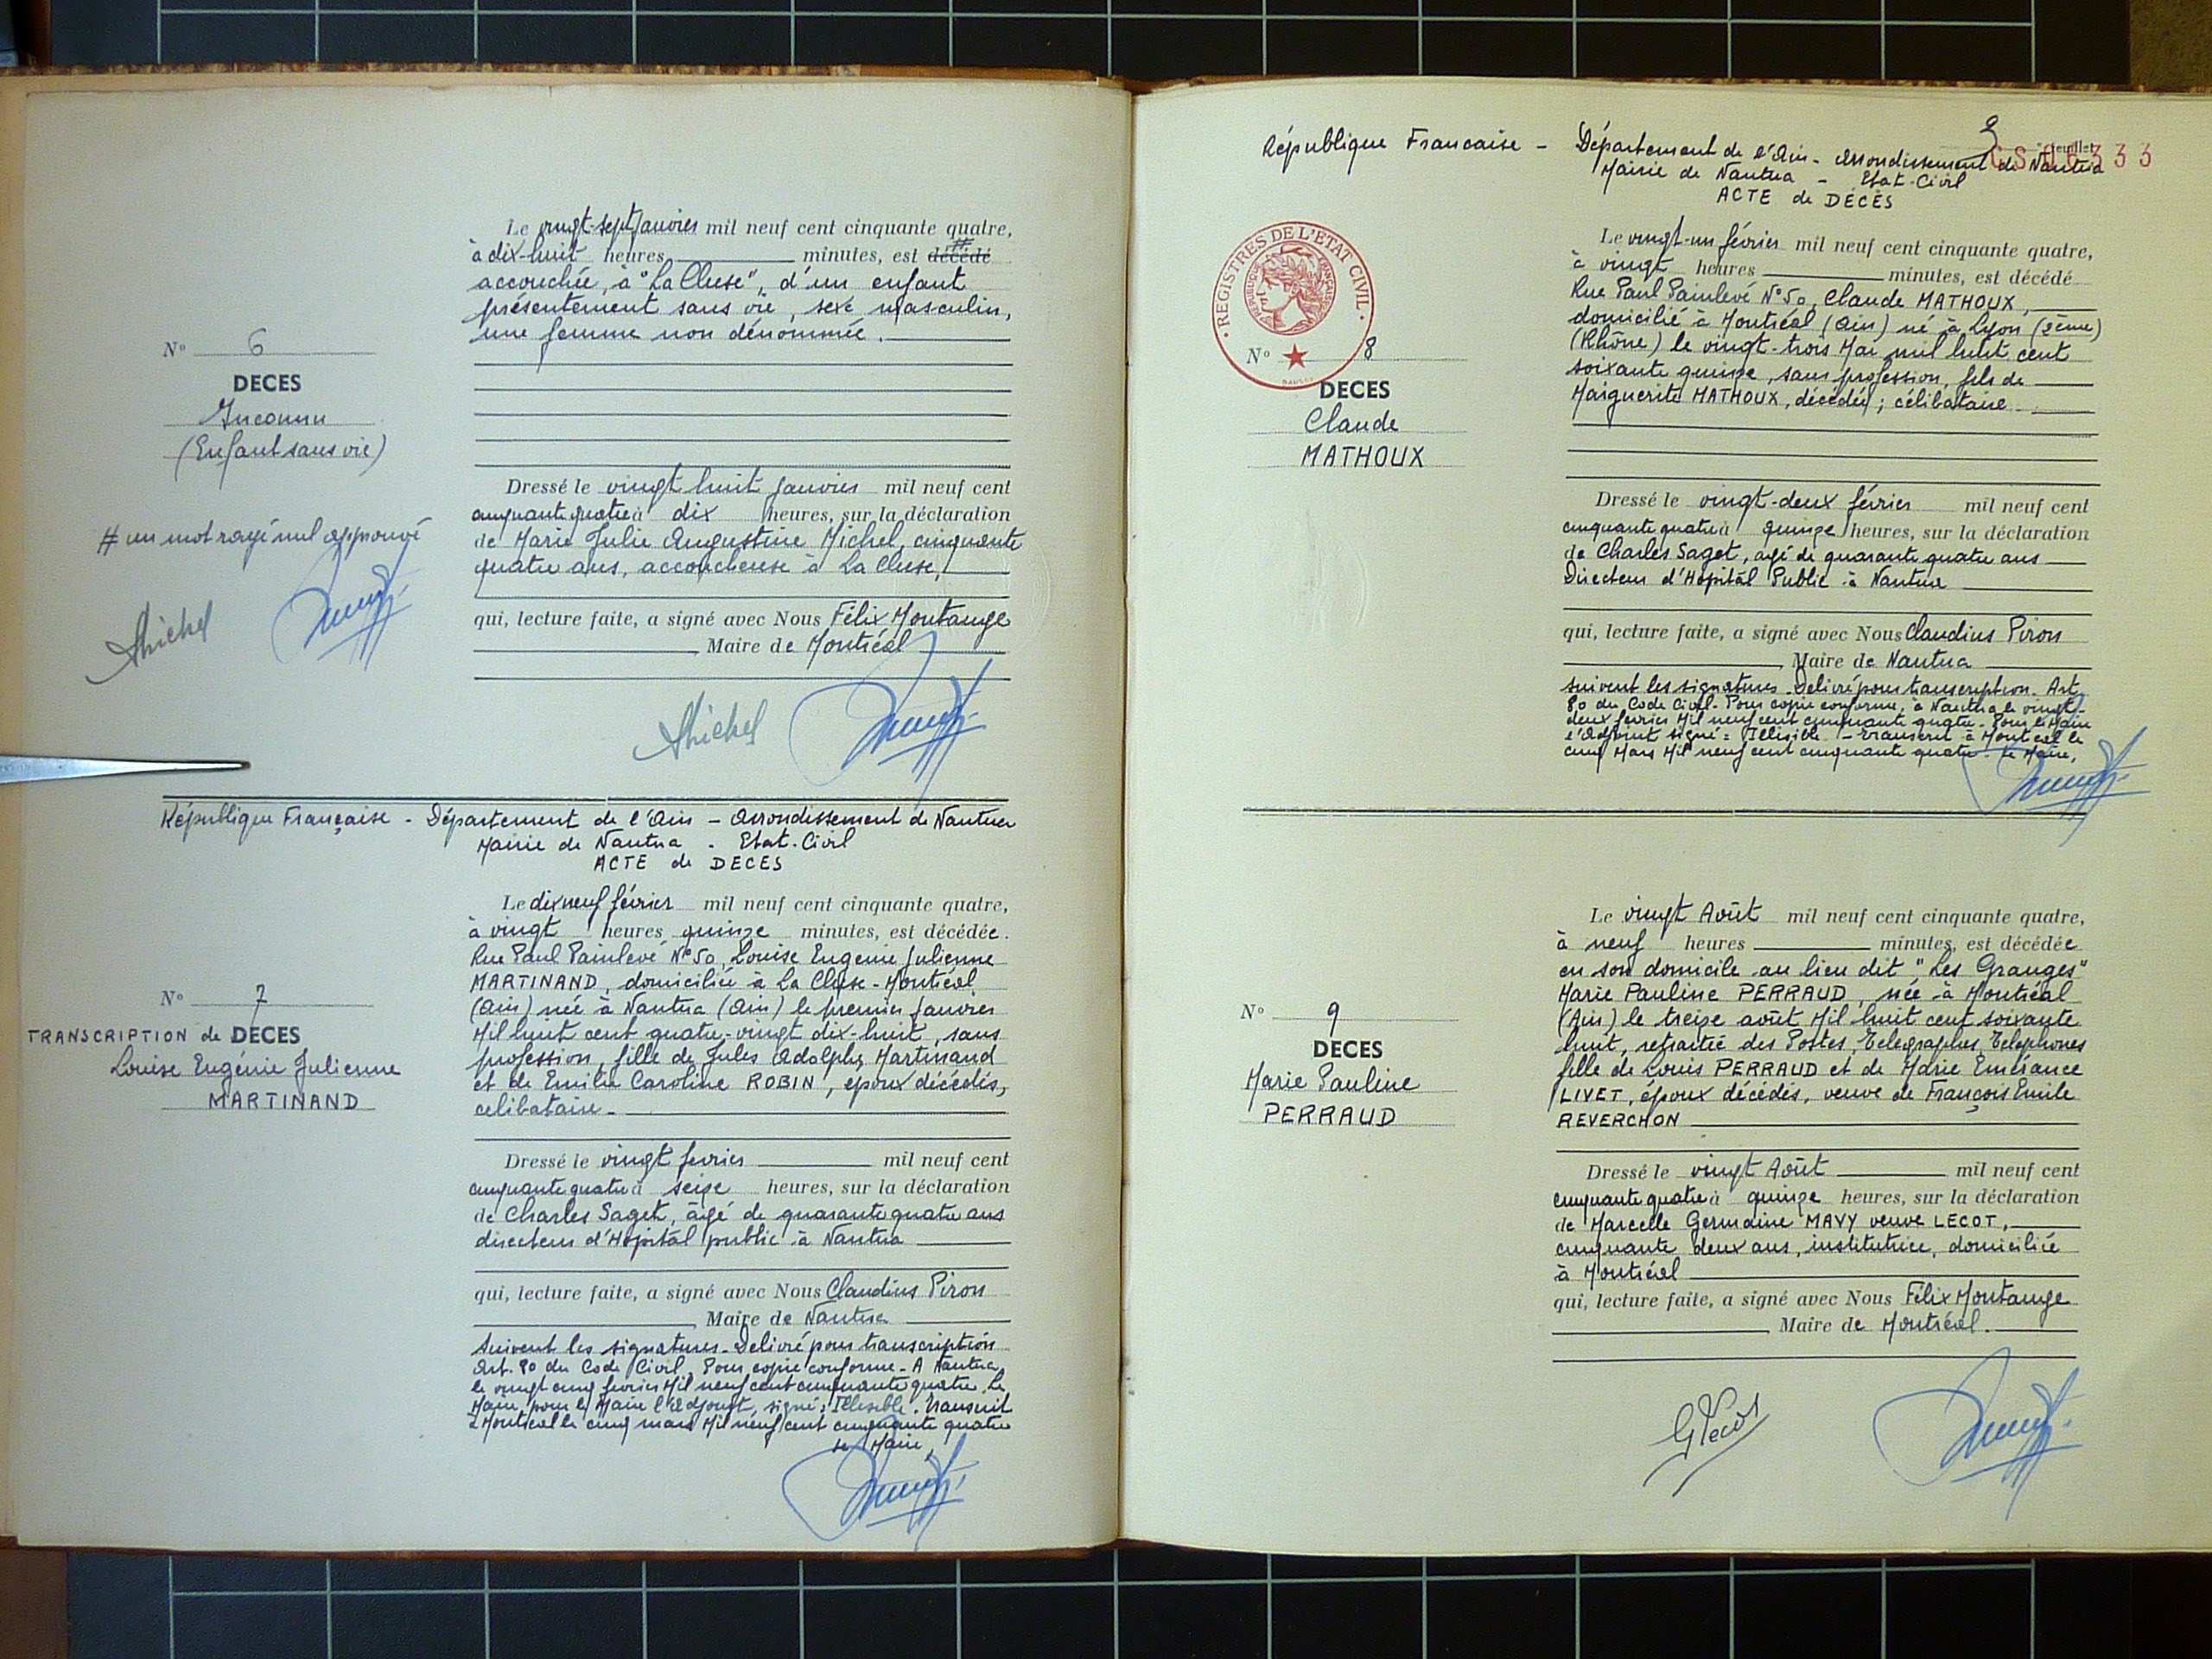 Le vingt-sept Janvier mil neuf cent cinquante quatre,
à dix-huit heures minutes, est décédé #
accouchée, à "La Cluse", d'un enfant
présentement sans vie, sexe masculin,
une femme non dénommée.
N° 6
DECES
Inconnu
(Enfant sans vie)
Dressé le vingt huit Janvier mil neuf cent
cinquante quatre à dix heures, sur la déclaration
de Marie Julie Augustine Michel, cinquante
quatre ans, accoucheuse à La Cluse,
# un mot rayé nul approuvé
qui, lecture faite, a signé avec Nous Félix Montange
Maire de Montréal
Michel
Michel
République Française - Département de l'Ain - Arrondissement de Nantua
Mairie de Nantua - Etat-Civil
ACTE de DECES
Le dix neuf février mil neuf cent cinquante quatre,
à vingt heures quinze minutes, est décédée
Rue Paul Painlevé N° 50, Louise Eugénie Julienne
MARTINAND, domiciliée à La Cluse-Montréal
(Ain) née à Nantua (Ain) le premier Janvier
Mil huit cent quatre-vingt dix-huit, sans
profession, fille de Jules Adolphe Martinand
et de Emilie Caroline ROBIN, époux décédés,
célibataire -
N° 7
TRANSCRIPTION de DECES
Louise Eugénie Julienne
MARTINAND
Dressé le vingt fevrier mil neuf cent
cinquante quatre à seize heures, sur la déclaration
de Charles Saget, âgé de quarante quatre ans
directeur d'Hôpital public à Nantua
qui, lecture faite, a signé avec Nous Claudius Piron
Maire de Nantua
Suivent les signatures - Délivré pour transcription
Art. 80 du Code Civil. Pour copie conforme - A Nantua
le vingt cinq fevrier Mil neuf cent cinquante quatre. Le
Maire, pour le Maire l'adjoint, signé : Illisible. Transcrit
à Montréal le cinq mars Mil neuf cent cinquante quatre
Le Maire,
9
feuillet
333
République Francaise - Département de l'Ain - Arrondissement de Nantua
Mairie de Nantua - Etat-Civil
ACTE de DECES
Le vingt-un février mil neuf cent cinquante quatre,
à vingt heures minutes, est décédé
Rue Paul Painlevé N° 50, Claude MATHOUX,
domicilié à Montréal (Ain) né à Lyon (2ème)
(Rhône) le vingt-trois Mai mil huit cent
soixante quinze, sans profession, fils de
Marguerite MATHOUX, décédée ; célibataire
REGISTRES DE L'ETAT CIVIL
N° 8
DECES
Claude
MATHOUX
Dressé le vingt-deux février mil neuf cent
cinquante quatre à quinze heures, sur la déclaration
de Charles Saget, agé de quarante quatre ans
Directeur d'Hôpital Public à Nantua
qui, lecture faite, a signé avec Nous Claudius Piron
Maire de Nantua
suivent les signatures - Délivré pour transcription. Art.
80 du Code Civil - Pour copie conforme, à Nantua le vingt-
deux fevrier Mil neuf cent cinquante quatre - Pour le Maire
l'Adjoint signé = Illisible - Transcrit à Montréal le
cinq Mars Mil neuf cent cinquante quatre. Le Maire,
Le vingt Août mil neuf cent cinquante quatre,
à neuf heures minutes, est décédée
en son domicile au lieu dit "Les Granges"
Marie Pauline PERRAUD, née à Montréal
(Ain) le treize août Mil huit cent soixante
huit, retraitée des Postes, Telegraphes, Telephones
fille de Louis PERRAUD et de Marie Emérance
LIVET, époux décédés, veuve de François Emile
REVERCHON
N° 9
DECES
Marie Pauline
PERRAUD
Dressé le vingt Août mil neuf cent
cinquante quatre à quinze heures, sur la déclaration
de Marcelle Germaine MAVY veuve LECOT,
cinquante deux ans, institutrice, domiciliée
à Montréal
qui, lecture faite, a signé avec Nous Félix Montange
Maire de Montréal.
G Lecot